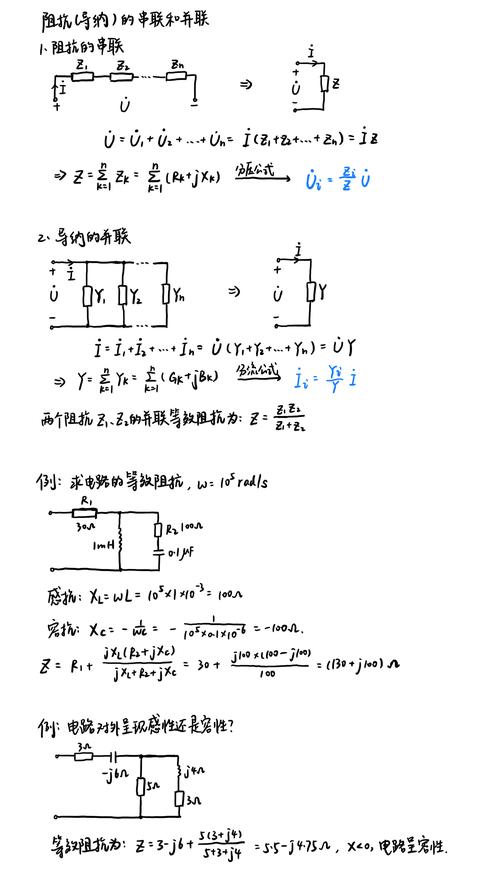 阻抗(导纳)的串联和并联
1. 阻抗的串联
Z₁ Z₂ ... Zn
İ
+ U̇ -
⇒
İ
+ U̇ - Z
U̇ = U̇₁ + U̇₂ + ... + U̇n = İ(Z₁+Z₂+...+Zn) = İZ
⇒ Z = ∑_{k=1}^{n} Zk = ∑_{k=1}^{n} (Rk+jXk) 分压公式 → U̇i = Zi/Z U̇
2. 导纳的并联
İ
+ U̇ - Y₁ Y₂ ... Yn
⇒
İ
+ U̇ - Y
İ = İ₁ + İ₂ + ... + İn = U̇(Y₁+Y₂+...+Yn) = U̇Y
⇒ Y = ∑_{k=1}^{n} Yk = ∑_{k=1}^{n} (Gk+jBk) 分流公式 → İi = Yi/Y İ
两个阻抗 Z₁、Z₂的并联等效阻抗为: Z = Z₁Z₂/(Z₁+Z₂)
例: 求电路的等效阻抗, ω = 10⁵ rad/s
R₁
30Ω
1mH
R₂ 100Ω
0.1μF
感抗: XL = ωL = 10⁵×1×10⁻³ = 100Ω
容抗: Xc = -1/ωC = -1/(10⁵×0.1×10⁻⁶) = -100Ω.
Z = R₁ + jXL(R₂+jXc)/(jXL+R₂+jXc) = 30 + j100×(100-j100)/100 = (130+j100)Ω
例: 电路对外呈现感性还是容性?
3Ω
-j6Ω
5Ω
j4Ω
3Ω
等效阻抗为: Z = 3-j6 + 5(3+j4)/(5+3+j4) = 5.5-j4.75Ω, X<0, 电路呈容性.